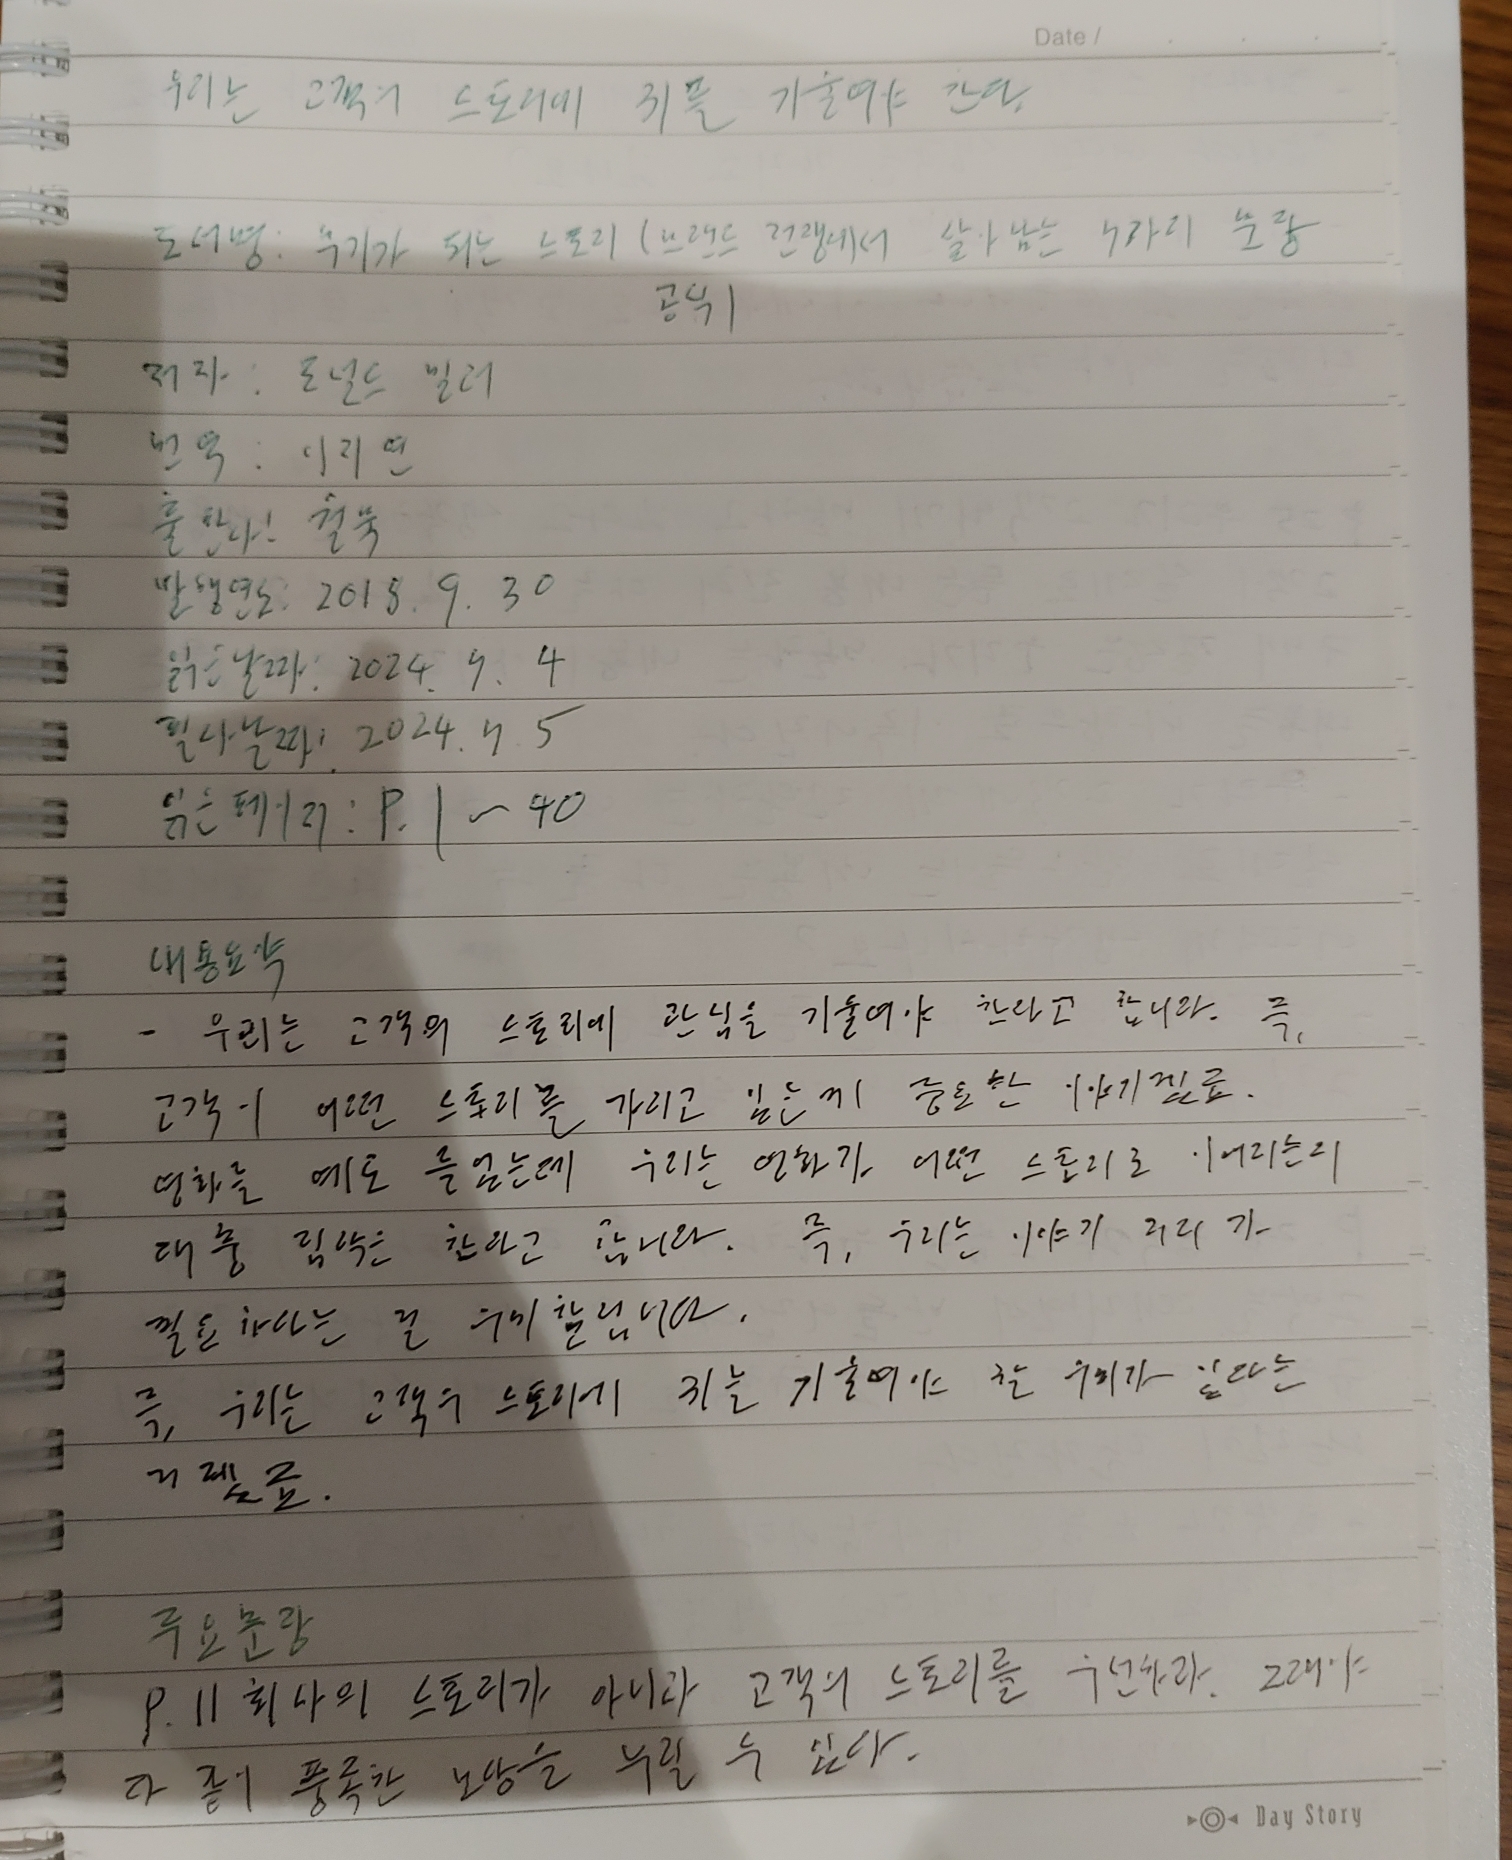 Date /
우리는 고객의 스토리에 귀를 기울여야 한다.
도서명: 무기가 되는 스토리 (브랜드 전쟁에서 살아남는 7가지 문장
공식)
저자: 도널드 밀러
번역: 이지연
출판사: 윌북
발행연도: 2018. 9. 30
읽은날짜: 2024. 4. 4
필사날짜: 2024. 4. 5
읽은페이지: P. 1 ~ 40
내용요약
- 우리는 고객의 스토리에 관심을 기울여야 한다고 합니다. 즉,
고객이 어떤 스토리를 가지고 있는게 중요한 이야기겠죠.
영화를 예도 들었는데 우리는 영화가 어떤 스토리로 이어지는지
대충 짐작은 한다고 합니다. 즉, 우리는 이야기 거리가
필요하다는 걸 의미할겁니다.
즉, 우리는 고객의 스토리에 귀를 기울여야 할 의미가 있다는
거겠죠.
주요문장
P. 11 회사의 스토리가 아니라 고객의 스토리를 우선하라. 그래야
다 같이 풍족한 보상을 누릴 수 있다.
Day Story